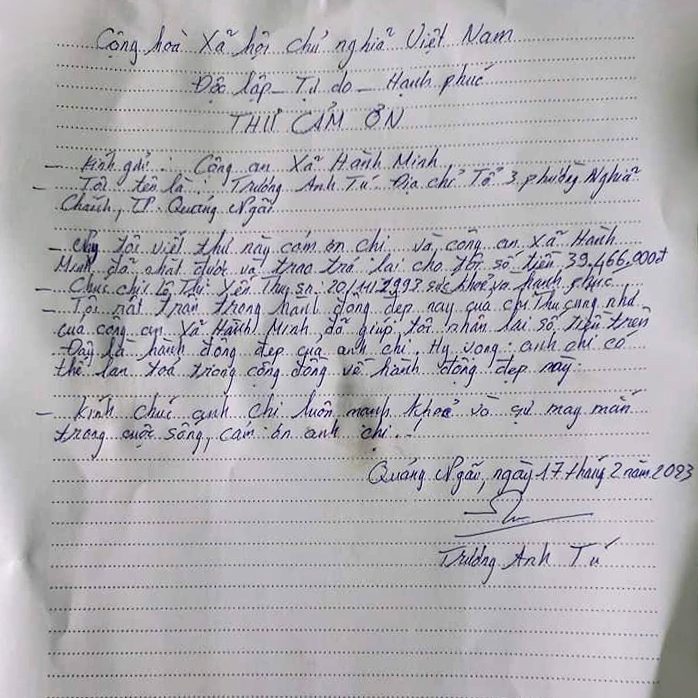 Cộng hoà Xã hội chủ nghĩa Việt Nam
Độc lập - Tự do - Hạnh phúc
THƯ CẢM ƠN
- Kính gửi: Công an Xã Hành Minh
- Tôi tên là: Trương Anh Tú Địa chỉ Tổ 3 phường Nghĩa
Chánh, TP. Quảng Ngãi
- Nay tôi viết thư này cảm ơn chị và công an xã Hành
Minh, đã nhặt được và trao trả lại cho tôi số tiền 39,466,000đ
- Chúc chị Thị Yến Thu sn: 20/11/1998 sức khoẻ và hạnh phúc,
- Tôi rất trân trọng hành động đẹp này của chị Thu cũng như
của công an Xã Hành Minh đã giúp tôi nhận lại số tiền trên
Đây là hành động đẹp của anh chị. Hy vọng anh chị có
thể lan toả trong cộng đồng về hành động đẹp này.
- Kính chúc anh chị luôn mạnh khoẻ và sự may mắn
trong cuộc sống, cám ơn anh chị..
Quảng Ngãi, ngày 17 tháng 2 năm 2023
Trương Anh Tú